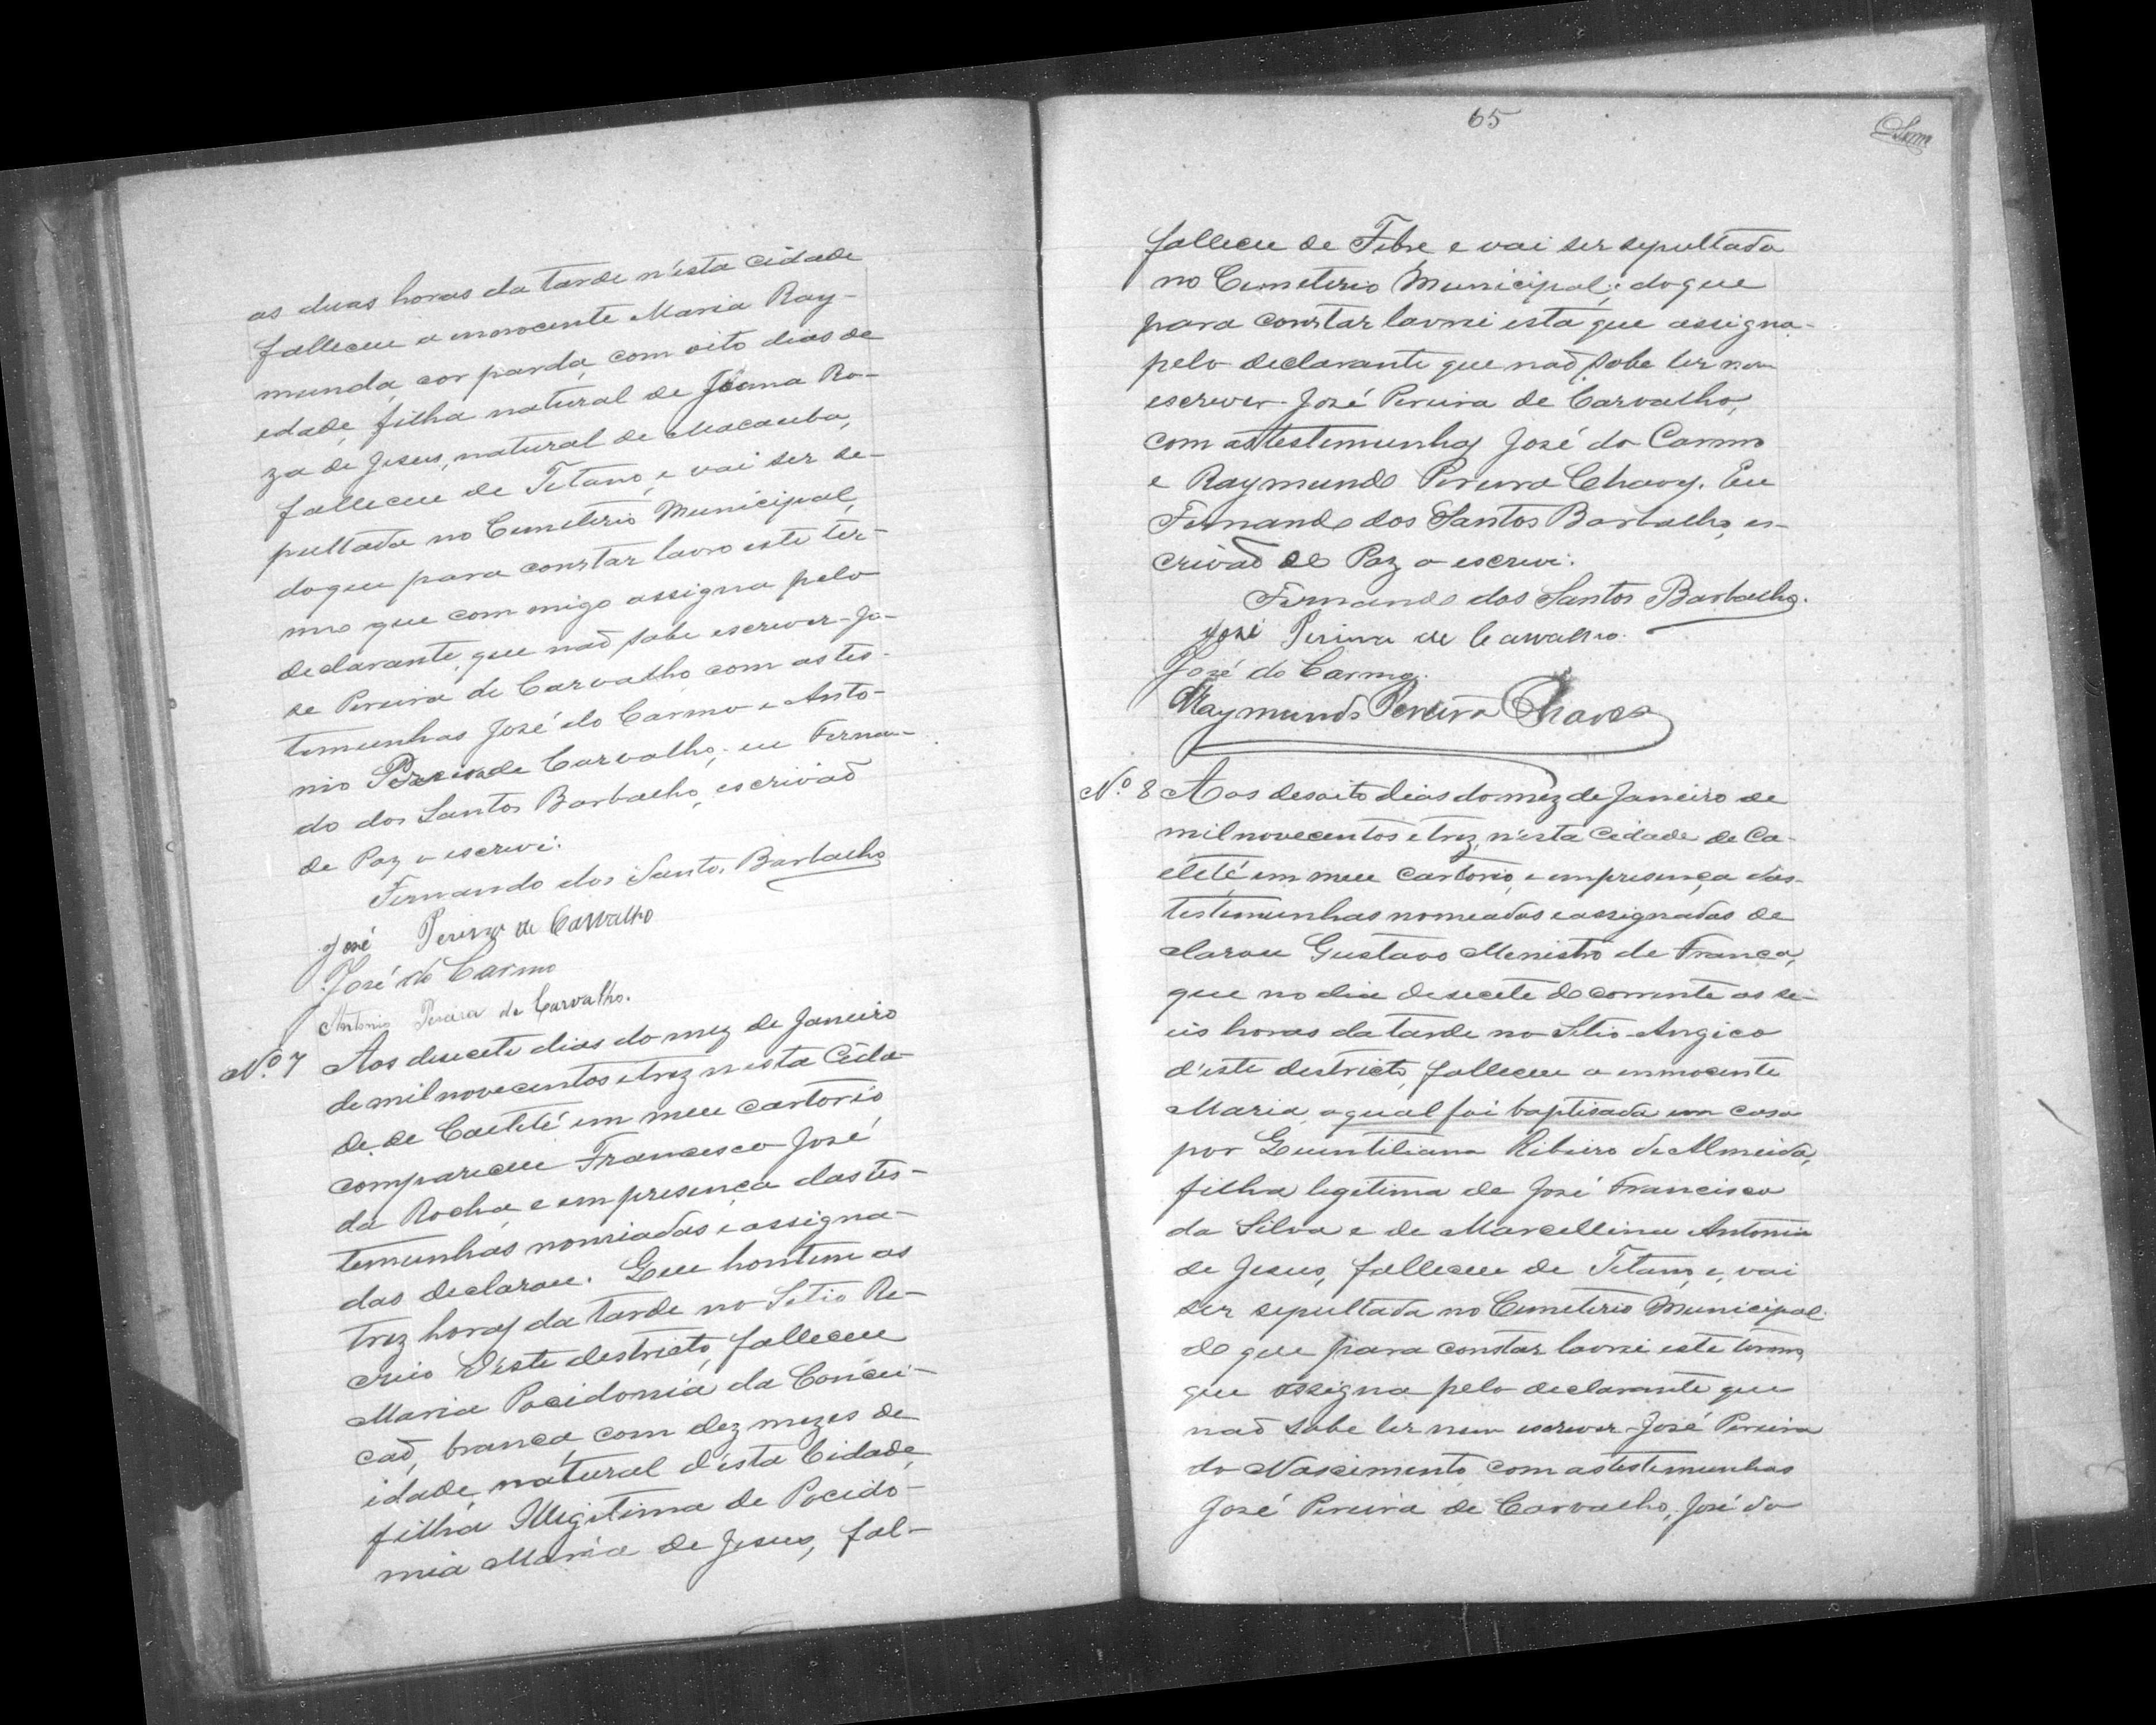 as duas horas da tarde n'esta cidade
falleceu a innocente Maria Ray-
munda, cor parda, com oito dias de
edade, filha natural de Joana Ro-
za de Jesus, natural de Macauba,
falleceu de Tetano, e vai ser se-
pultada no Cemeterio Municipal,
doque para constar lavro este ter-
mo que com migo assigna pelo
declarante, que naõ sabe escrever-Jo-
se Pereira de Carvalho com as tes-
temunhas José do Carmo e Anto-
nio Pereira de Carvalho; eu Fernan-
do dos Santos Barbalho, escrivaõ
de Paz o escrevi.
Fernando dos Santos Barbalho
José Pereira de Carvalho
José do Carmo
Antonio Pereira de Carvalho.
Nº 7 Aos desecete dias do mez de Janeiro
de mil novecentos e trez n esta Cida-
de de Caeteté em meu cartorio
compareceu Francisco José
da Rocha, e em presença das tes-
temunhas nomiadas e assigna-
das declarou. Que hontem as
trez horas da tarde no Sitio Re-
creio d'este destricto, falleceu
Maria Pocidonia da Concei-
caõ, branca, com dez mezes de
idade, natural d'esta Cidade,
filha Illigitima de Pocido-
nia Maria de Jesus, fal-
65
falleceu de Febre, e vai ser sepultada
no Cemeterio Municipal; doque
para constar lavrei esta que assigna-
pelo declarante que naõ sabe ler nem
escrever-José Pereira de Carvalho,
com as testemunhas José do Carmo
e Raymundo Pereira Chaves. Eu
Fernando dos Santos Barbalho, es-
crivaõ de Paz o escrevi.
Fernando dos Santos Barbalho.
José Pereira de Carvalho.
José do Carmo.
Raymundo Pereira Chaves
Nº 8 Aos desoito dias do mez de Janeiro de
mil novecentos e trez, n'esta Cidade de Ca-
eteté, em meu cartorio, e em presença das-
testemunhas nomeadas e assignadas de
clarou Gustavo Menistro de França,
que no dia desecete do corrente as se-
is horas da tarde no Sitio-Angico
d'este destricto, falleceu a innocente
Maria, a qual foi baptisada em casa
por Quintiliana Ribeiro de Almeida,
filha legitima de José Francisco
da Silva e de Marcellina Antonia
de Jesus, falleceu de Tetano, e, vai
ser sepultada no Cemeterio Municipal
do que para constar lavrei este termo,
que assigna pelo declarante que
naõ sabe ler nem escrever-José Pereira
do Nascimento com as testemunhas
José Pereira de Carvalho, José do